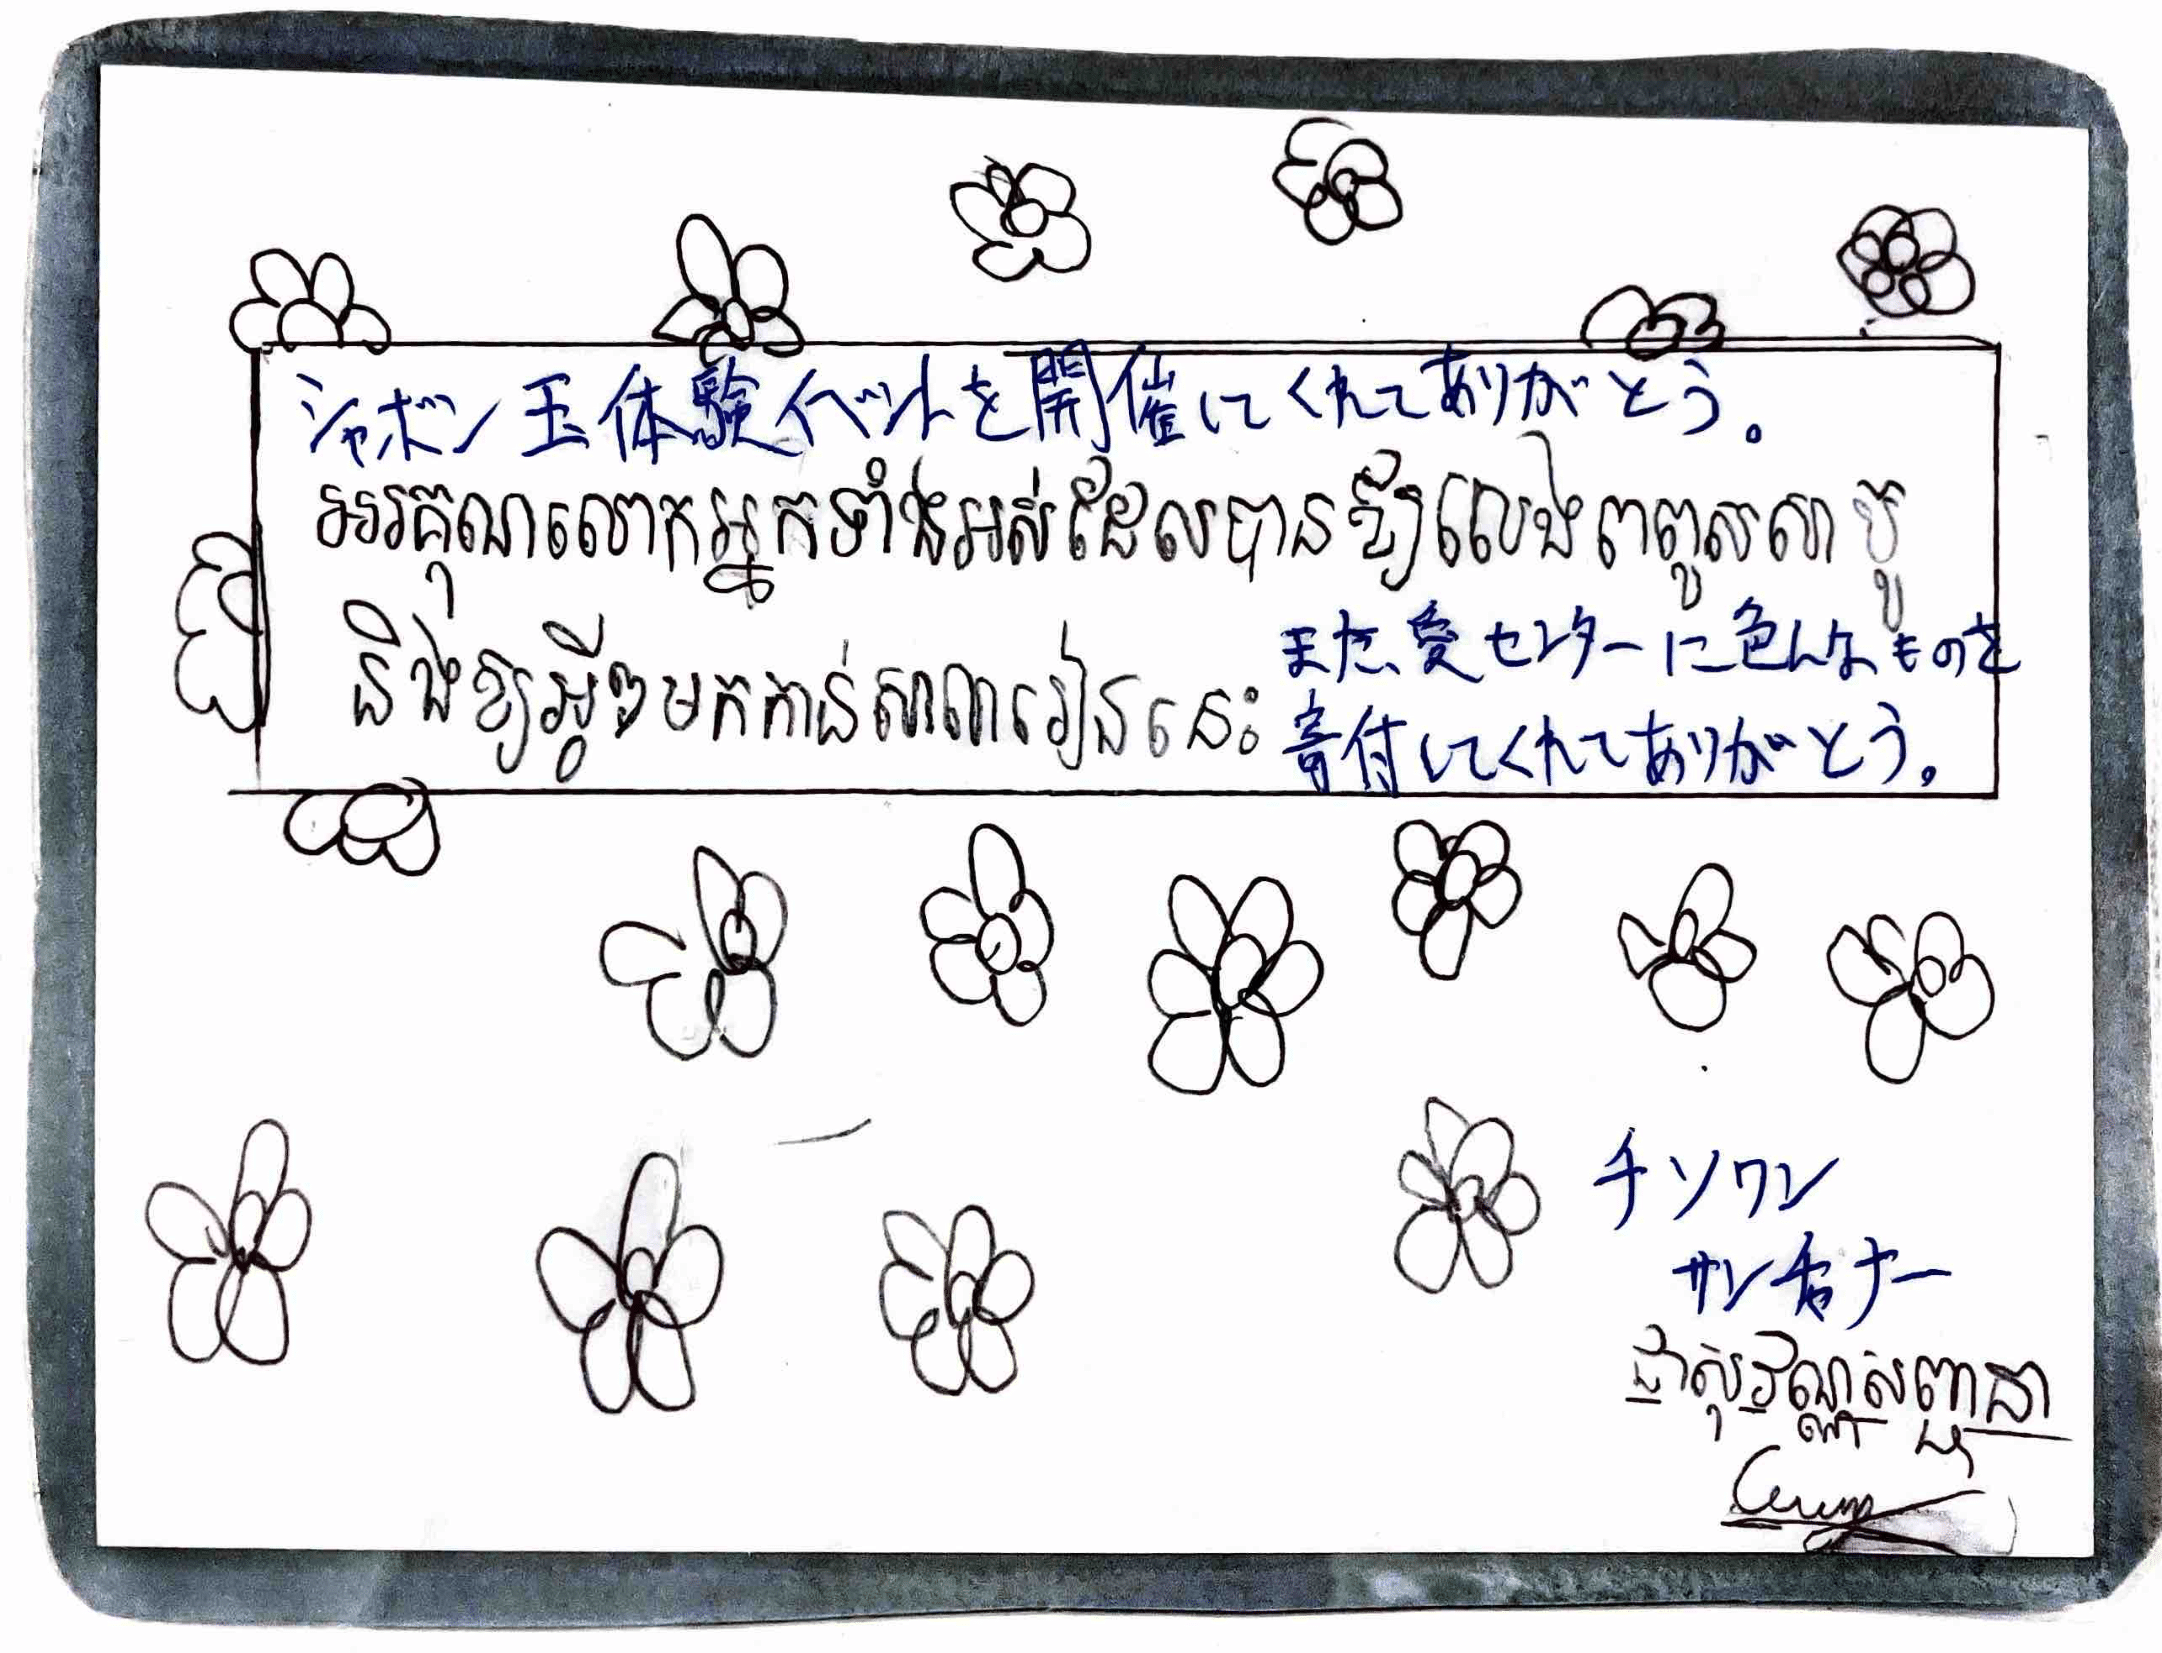 シャボン玉体験イベントを開催してくれてありがとう。
អរគុណលោកអ្នកទាំងអស់ដែលបានឱ្យលេងពពុះសាប៊ូ
និងឱ្យអ្វីៗមកកាន់សាលារៀននេះ
また、愛センターに色んなものを
寄付してくれてありがとう。
チソワン
サンチャナー